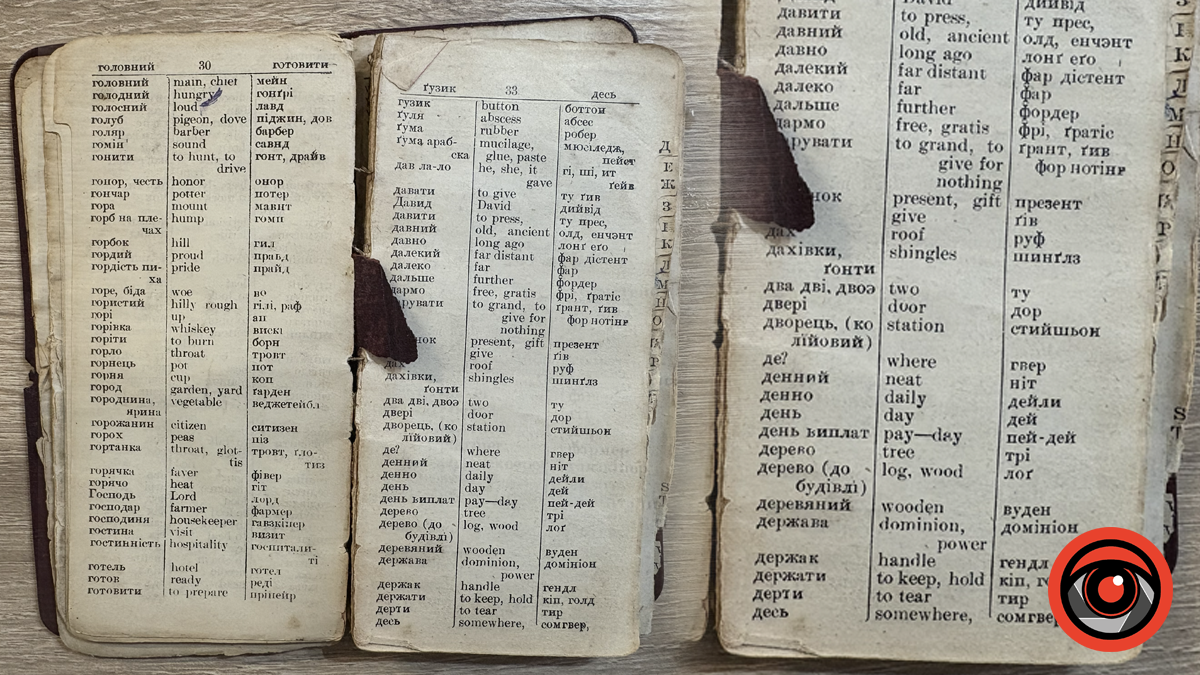 головний 30 готовити
головний main, chief мейн
голодний hungry гонґрі
голосний loud лавд
голуб pigeon, dove піджин, дов
голяр barber барбер
гомін sound савнд
гонити to hunt, to гонт, драйв
drive
гонор, честь honor онор
гончар potter потер
гора mount мавнт
горб на пле- hump гомп
чах
горбок hill гил
гордий proud правд
гордість пи- pride прайд
ха
горе, біда woe во
гористий hilly rough гілі, раф
горі up ап
горівка whiskey вискі
горіти to burn борн
горло throat тровт
горнець pot пот
горня cup коп
город garden, yard ґарден
городнина, vegetable веджетейбл
ярина
горожанин citizen ситизен
горох peas піз
гортанка throat, glot- тровт, ґло-
tis тиз
горячка faver фівер
горячо heat гіт
Господь Lord лорд
господар farmer фармер
господиня housekeeper гавзкіпер
гостина visit визит
гостинність hospitality госпитали-
ті
готель hotel готел
готов ready реді
готовити to prepare пріпейр
ґузик 33 десь
гузик button боттон
ґуля abscess абсес
ґума rubber робер
ґума араб- mucilage, мюсіледж,
ска glue, paste пейст
дав ла-ло he, she, it гі, ші, ит
gave ґейв
давати to give ту ґив
Давид David дийвід
давити to press, ту прес,
давний old, ancient олд, енчэнт
давно long ago лонґ еґо
далекий far distant фар дістент
далеко far фар
дальше further фордер
дармо free, gratis фрі, ґратіс
рувати to grand, to ґрант, ґив
give for фор нотінґ
nothing
нок present, gift презент
give ґів
дах roof руф
дахівки, shingles шинґлз
ґонти
два дві, двоэ two ту
двері door дор
дворець, (ко station стийшьон
лїйовий)
де? where гвер
денний neat ніт
денно daily дейли
день day дей
день виплат pay—day пей-дей
дерево tree трі
дерево (до log, wood лоґ
будівлі)
деревяний wooden вуден
держава dominion, домініон
power
держак handle гендл
держати to keep, hold кіп, голд
дерти to tear тир
десь somewhere, сомгвер,
Д
Е
Ж
З
І
К
Л
М
Н
О
К
Р
S
T
David дийвід
давити to press, ту прес,
давний old, ancient олд, енчэнт
давно long ago лонґ еґо
далекий far distant фар дістент
далеко far фар
дальше further фордер
дармо free, gratis фрі, ґратіс
рувати to grand, to ґрант, ґив
give for фор нотінґ
nothing
нок present, gift презент
give ґів
дах roof руф
дахівки, shingles шинґлз
ґонти
два дві, двоэ two ту
двері door дор
дворець, (ко station стийшьон
лїйовий)
де? where гвер
денний neat ніт
денно daily дейли
день day дей
день виплат pay—day пей-дей
дерево tree трі
дерево (до log, wood лоґ
будівлі)
деревяний wooden вуден
держава dominion, домініон
power
держак handle гендл
держати to keep, hold кіп,
дерти to tear тир
десь somewhere,